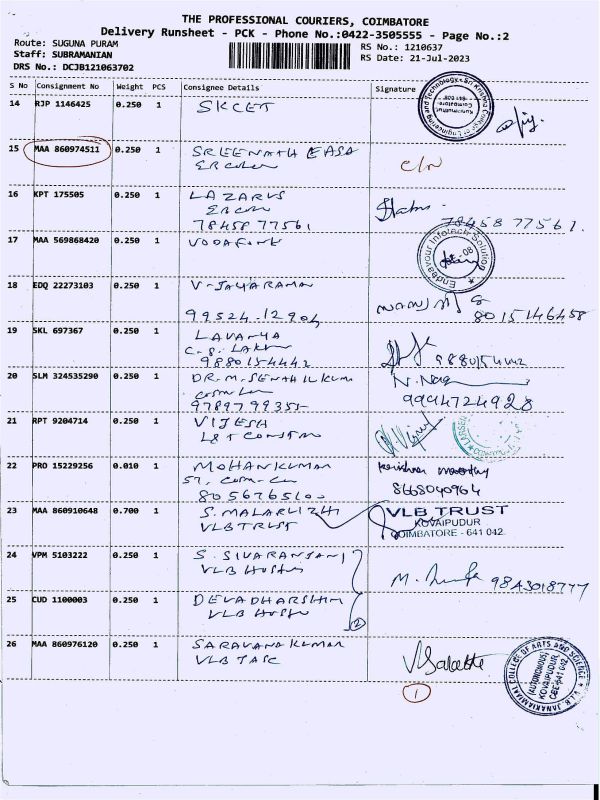 THE PROFESSIONAL COURIERS, COIMBATORE
Delivery Runsheet - PCK - Phone No.:0422-3505555 - Page No.:2
Route: SUGUNA PURAM
RS No.: 1210637
Staff: SUBRAMANIAN
RS Date: 21-Jul-2023
DRS No.: DCJB121063702
S No Consignment No Weight PCS Consignee Details Signature
14 RJP 1146425 0.250 1 SKCET
15 MAA 860974511 0.250 1 SREENATH EASA
16 KPT 175505 0.250 1 LAZARUS
78458 77561 78458 77561.
17 MAA 569868420 0.250 1 VODAFONE
Endeavour Infotech Solution
18 EDQ 22273103 0.250 1 V-JAYARAMAN
99524-12904 80 15146458
19 SKL 697367 0.250 1 LAVANYA
9880154442 9880154442
20 SLM 324535290 0.250 1 DR.M.SENTHILKUM
N. Nag
9789799355- 9994724928
21 RPT 9204714 0.250 1 VIJESH
L&T CONSTRN
22 PRO 15229256 0.010 1 MOHANKUMAR
57,
8056765100 8668040964
23 MAA 860910648 0.700 1 S. MALARVIZHI
VLB TRUST
VLB TRUST
KOVAIPUDUR
COIMBATORE - 641 042.
24 VPM 5103222 0.250 1 S. SIVARANJANI
VLB 9843018777
25 CUD 1100003 0.250 1 DEVADHARSHIN
VLB
2
26 MAA 860976120 0.250 1 SARAVANA KUMAR
VLB JASC
V.L.B. JANAKIAMMAL COLLEGE OF ARTS AND SCIENCE
(AUTONOMOUS)
KOVAIPUDUR
CBE-641 042.
1